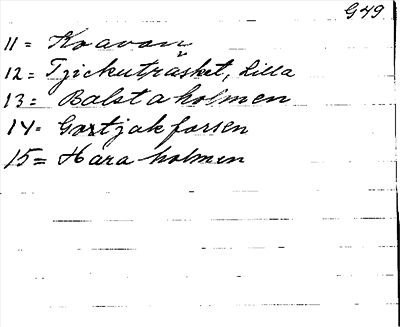 G49
11 = Koavan
12 = Tjickuträsket, Lilla
13 = Balstaholmen
14 = Gartjakforsen
15 = Haraholmen